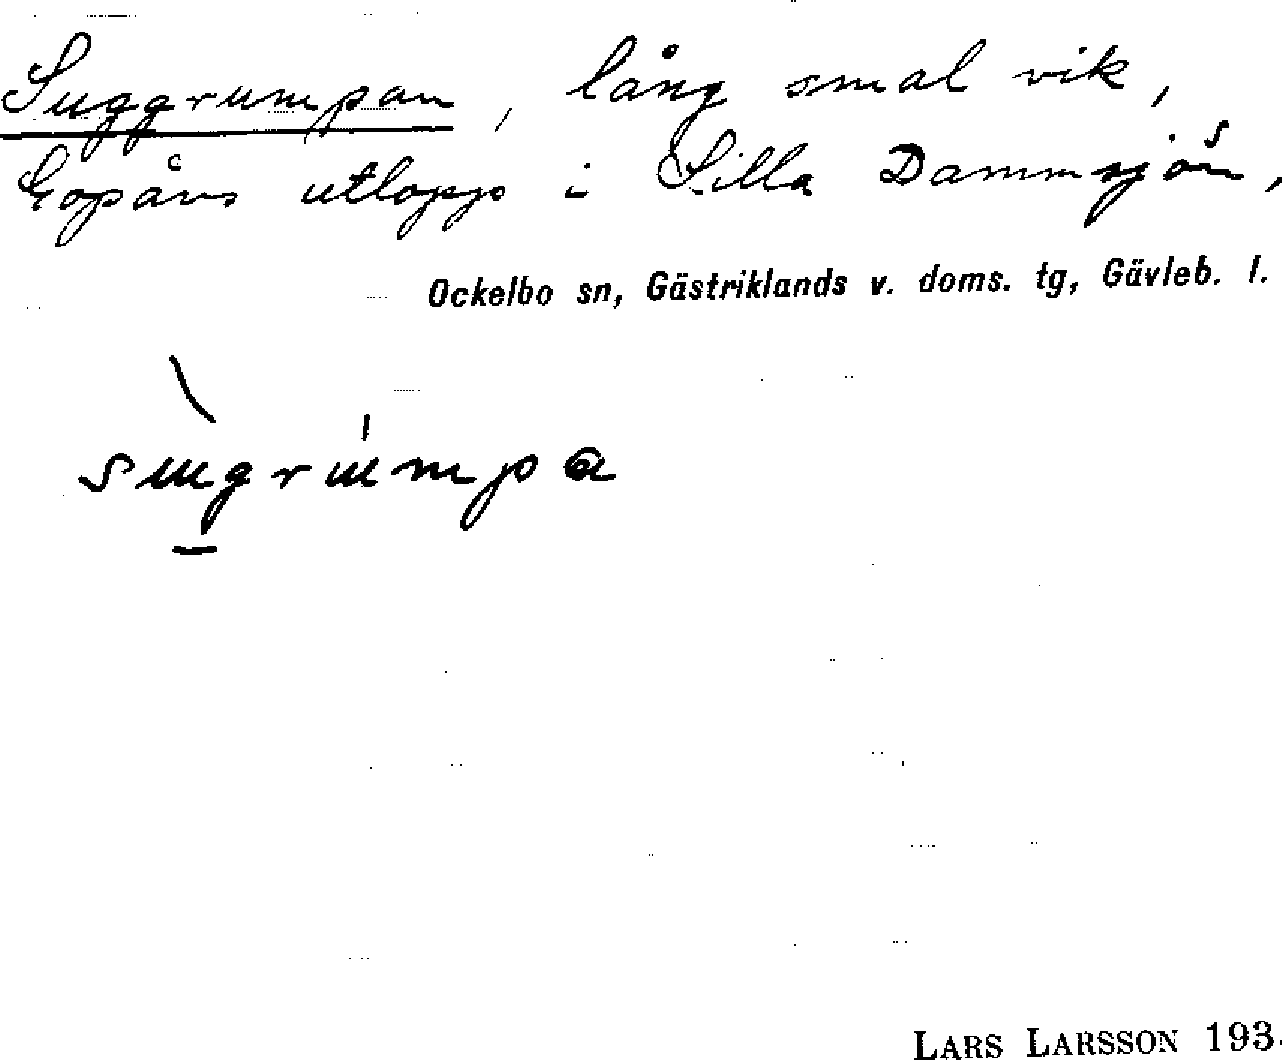 Suggrumpan, lång smal vik,
Gopåns utlopp i Lilla Dammsjön,
Ockelbo sn, Gästriklands v. doms. tg, Gävleb. l.
sugrumpa
LARS LARSSON 193.